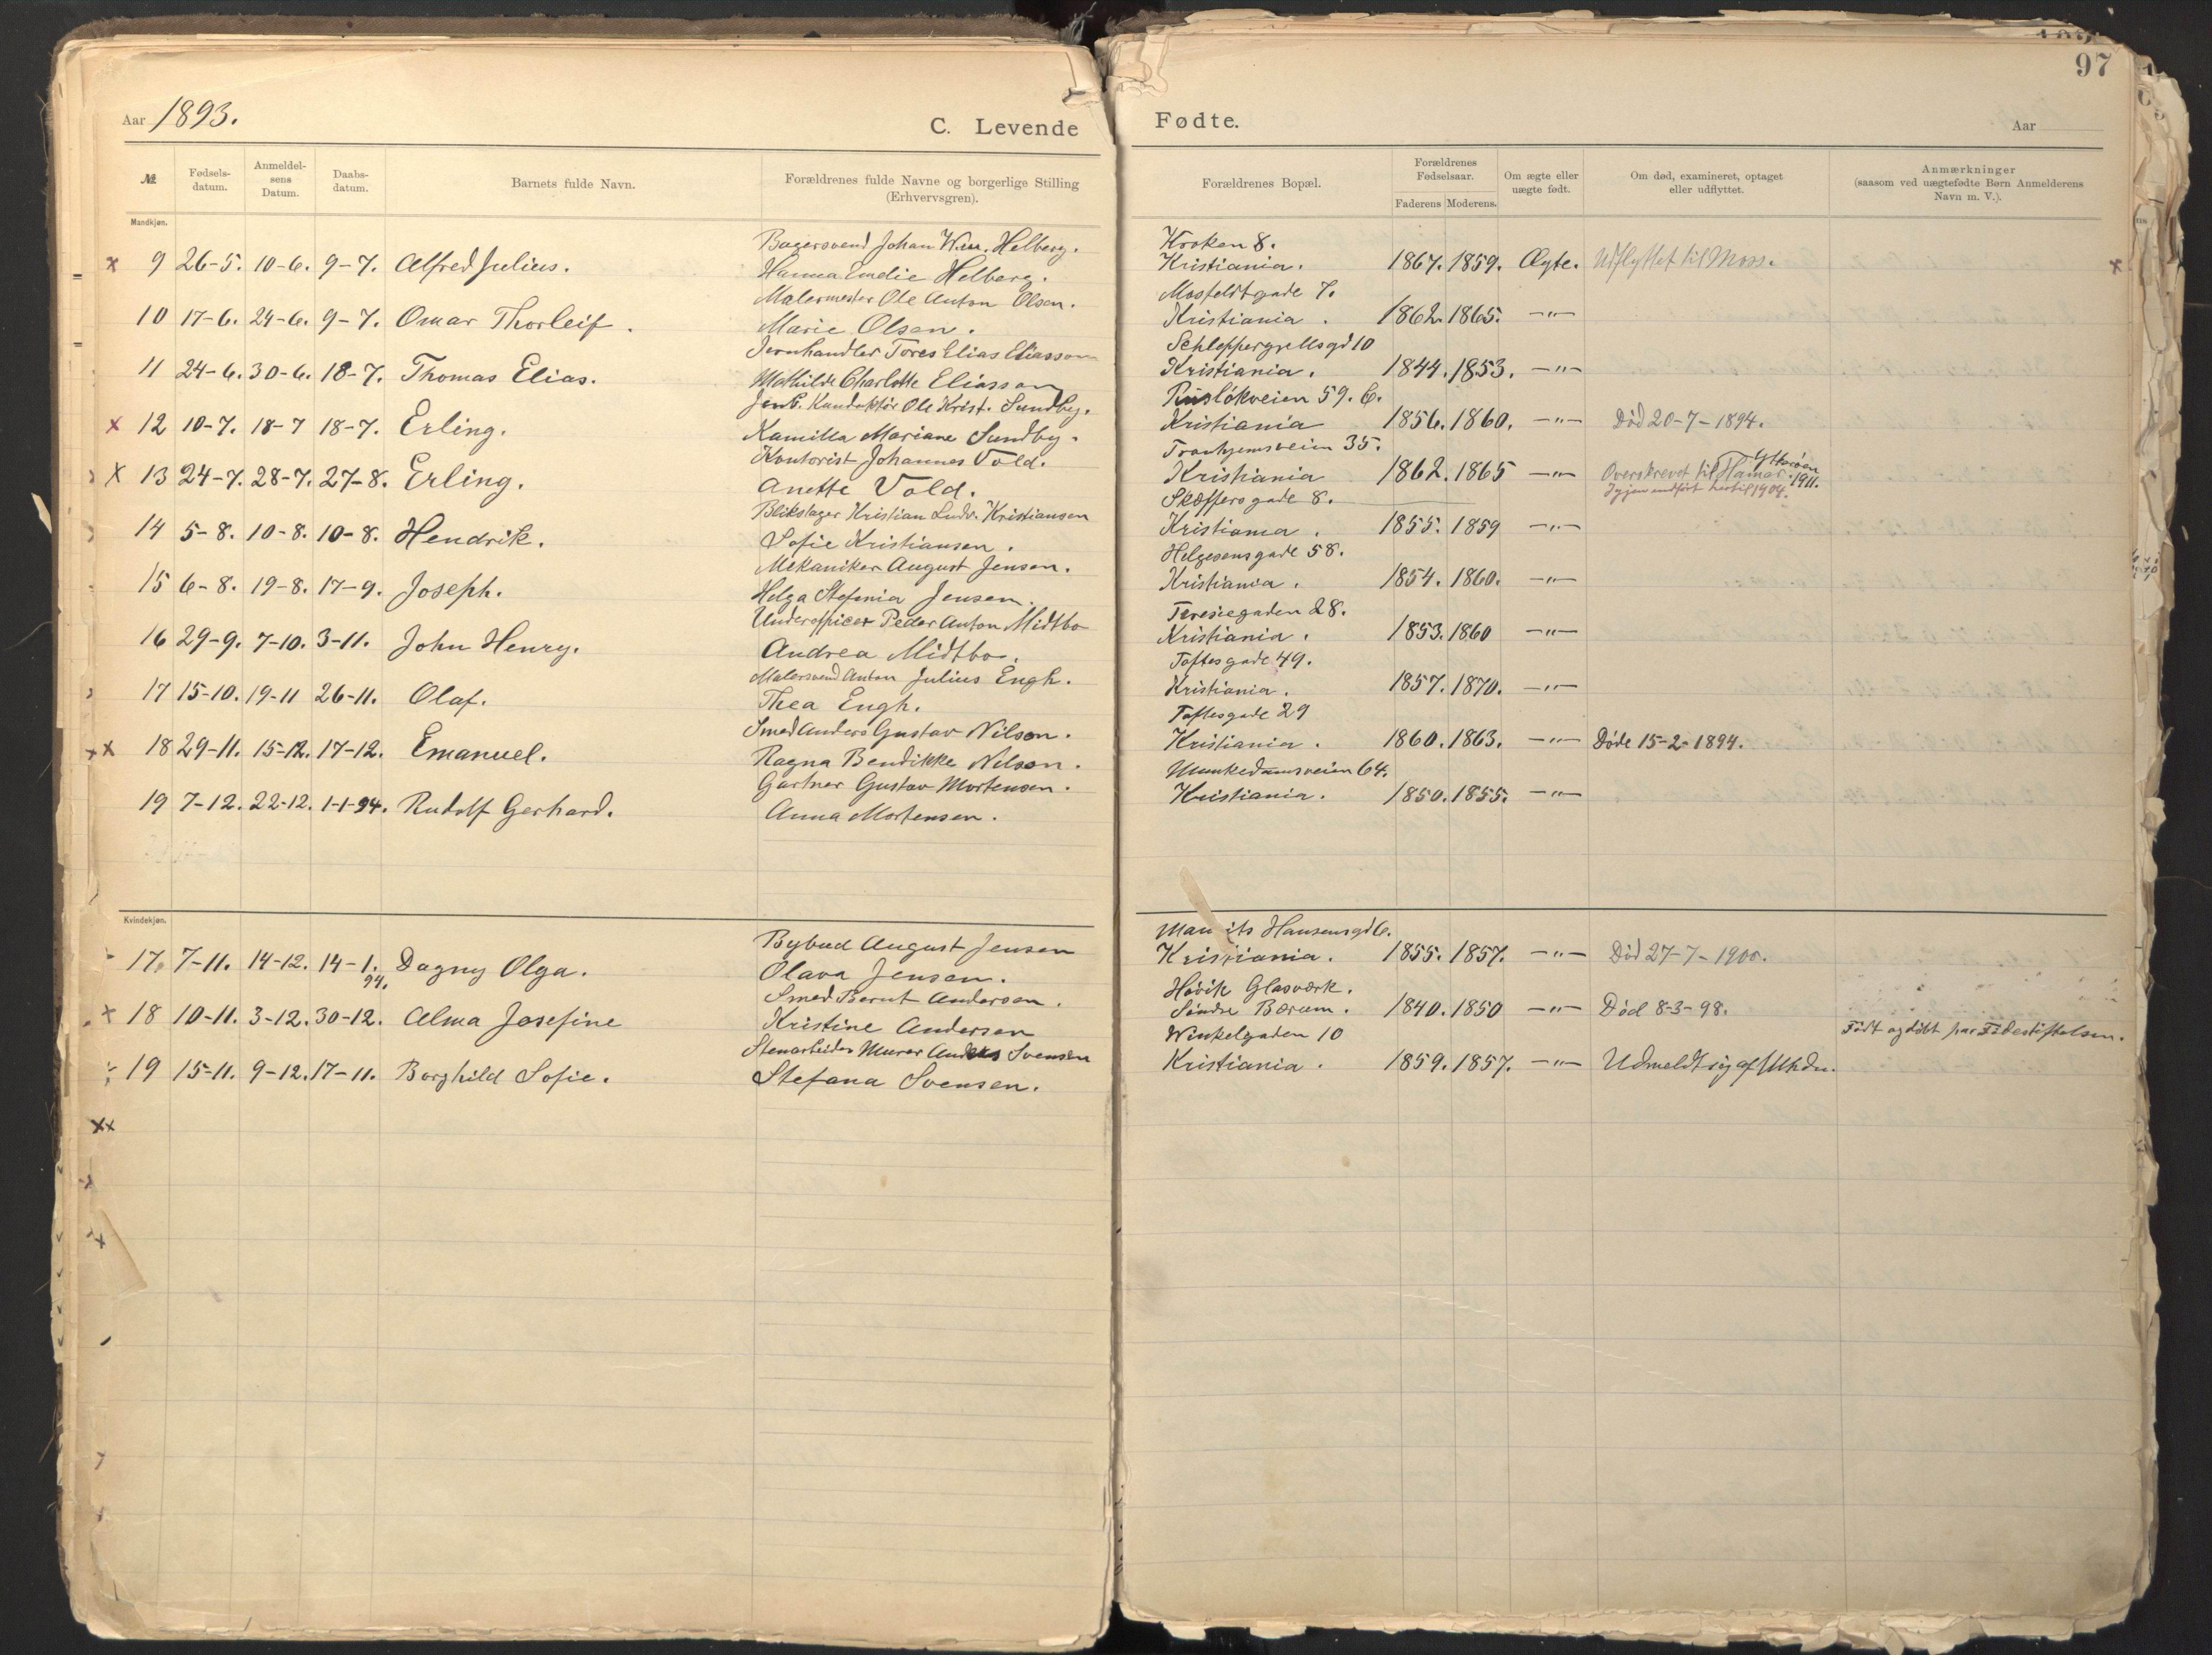 97
Aar 1893.
C. Levende Fødte.
Aar
№
Fødsels-datum.
Anmeldel-sens Datum.
Daabs-datum.
Barnets fulde Navn.
Forældrenes fulde Navne og borgerlige Stilling (Erhvervsgren).
Forældrenes Bopæl.
Forældrenes Fødselsaar.
Faderens Moderens.
Om ægte eller uægte født.
Om død, examineret, optaget eller udflyttet.
Anmærkninger (saasom ved uægtefødte Børn Anmelderens Navn m. V.).
Mandkjøn.
Bagersvend Johan Wm. Helberg. Kroken 8.
x 9 26-5. 10-6. 9-7. Alfred Julius. Hanna Emelie Helberg. Kristiania. 1867. 1859. Ægte. Udflyttet til Moss. x
Malermester Ole Anton Olsen. Mosfeldtgade 7.
10 17-6. 24-6. 9-7. Omar Thorleif. Marie Olsen. Kristiania. 1862. 1865. -"-
Jernhandler Tores Elias Eliasson Schleppergrellsgd 10
11 24-6. 30-6. 18-7. Thomas Elias. Mathilde Charlotte Eliasson Kristiania. 1844. 1853. -"-
Jernb. Konduktør Ole Krist. Sundby. Ruslökveien 59. 6.
x 12 10-7. 18-7 18-7. Erling. Kamilla Mariane Sundby. Kristiania 1856. 1860. -"- Död 20-7-1894.
Kontorist Johannes Vold. Tronhjemsveien 35.
x 13 24-7. 28-7. 27-8. Erling. Anette Vold. Kristiania 1862. 1865 -"- Overskrevet til Hamar. 1911.
Igjen indført hertil 1904.
Blikslager Kristian Ludv. Kristiansen Skøffersgade 8.
14 5-8. 10-8. 10-8. Hendrik. Sofie Kristiansen. Kristiania. 1855. 1859 -"-
Mekaniker August Jensen. Helgesensgade 58.
15 6-8. 19-8. 17-9. Joseph. Helga Stefania Jensen. Kristiania. 1854. 1860. -"-
Underofficer Peder Anton Midtbo Teresiegaden 28.
16 29-9. 7-10. 3-11. John Henry. Andrea Midtbo. Kristiania. 1853. 1860 -"-
Malersvend Anton Julius Engh. Toftesgade 49.
17 15-10. 19-11 26-11. Olaf. Thea Engh. Kristiania. 1857. 1870. -"-
Smed Anders Gustav Nilson. Toftesgade 29
xx 18 29-11. 15-12. 17-12. Emanuel. Ragna Bendikke Nilson. Kristiania. 1860. 1863. -"- Døde 15-2-1894.
Gartner Gustav Mortensen. Munkedamsveien 64.
19 7-12. 22-12. 1-1-94. Rudolf Gerhard. Anna Mortensen. Kristiania. 1850. 1855. -"-
Kvindekjøn.
Bybud August Jensen Maurits Hansensgd 6.
17. 7-11. 14-12. 14-1. 94. Dagny Olga. Olava Jensen. Kristiania. 1855. 1857. -"- Död 27-7-1900.
Smed Bernt Andersen. Hövik Glasværk.
x 18 10-11. 3-12. 30-12. Alma Josefine Kristine Andersen Söndre Bærum. 1840. 1850 -"- Död 8-3-98.
Stenarbeider Murer Anders Svensen Winkelgaden 10 Födt og döbt paa Födestiftelsen.
19 15-11. 9-12. 17-11. Borghild Sofie. Stefana Svensen. Kristiania. 1859. 1857. -"- Udmeldt sig af
xx